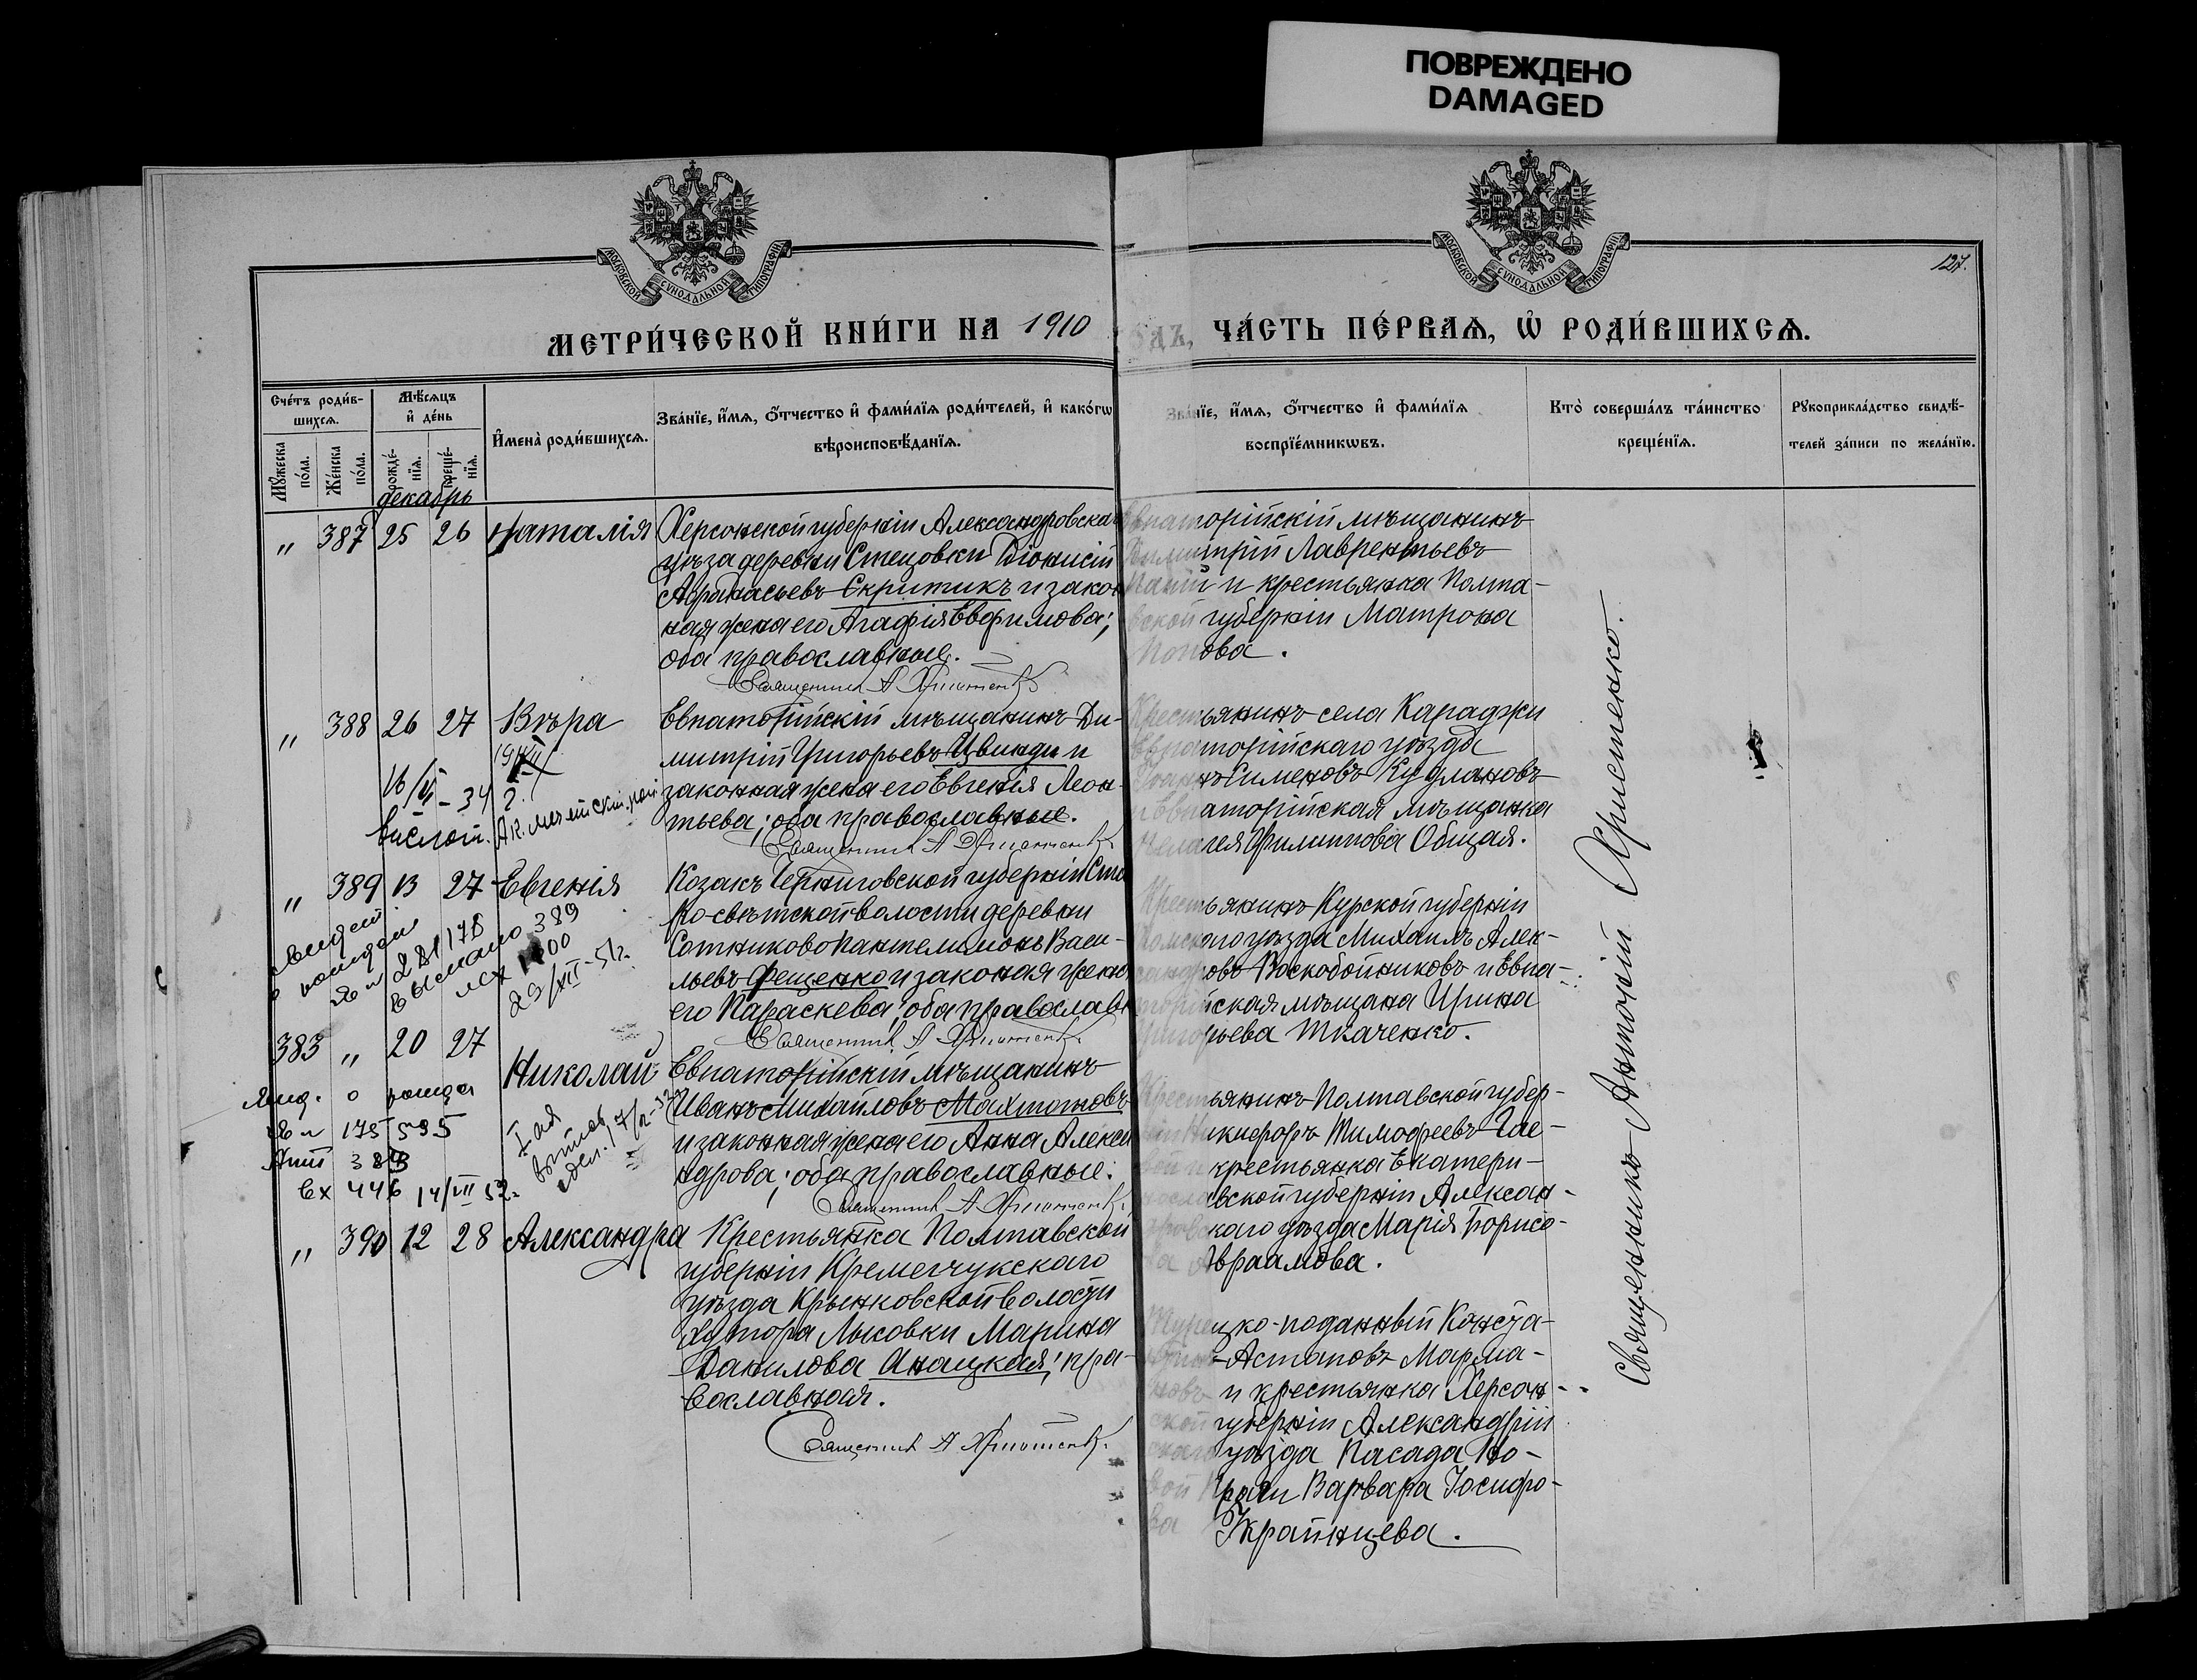 ПОВРЕЖДЕНО
DAMAGED
МОСКОВСКОЙ СУНОДАЛЬНОЙ ТИПОГРАФІИ
МОСКОВСКОЙ СУНОДАЛЬНОЙ ТИПОГРАФІИ
127.
МЕТРИ́ЧЕСКОЙ КНИ́ГИ НА 1910
ЧА́СТЬ ПЕ́РВАѦ, Ѡ҆ РОДИ́ВШИХСѦ.
Сче́тъ роди́в-
шихсѧ.
Мꙋ́жеска
по́ла.
Же́нска
по́ла.
Мѣ́сѧцъ
и҆ де́нь
рожде́-
нїѧ.
креще́-
нїѧ.
И҆мена̀ роди́вшихсѧ.
Зва́нїе, и҆́мѧ, ѻ҆́тчество и҆ фами́лїѧ роди́телей, и҆ како́гѡ
вѣроисповѣ́данїѧ.
Зва́нїе, и҆́мѧ, ѻ҆́тчество и҆ фами́лїѧ
воспрїе́мникѡвъ.
Кто̀ соверша́лъ та́инство
креще́нїѧ.
Рꙋкоприкла́дство свидѣ́-
телей за́писи по жела́нїю.
декабрь
" 387 25 26 Наталія
Херсонской губерніи Александровска
уѣза деревни Стецовки Діонисій
Афанасьевъ Скритикъ и закон
ная жена его Агафія Евфимова;
оба православные.
Священникъ А Христенко
Евпаторійскій мѣщанинъ
Димитрій Лаврентьевъ
и крестьянка Полта-
вской губерніи Матрона
Попова.
" 388 26 27 Вѣра
16/VI - 34
Евпаторійскій мѣщанинъ Ди-
митрій Григорьевъ Цвинди и
законная жена его Евгенія Леон-
тьева; оба православные.
Священникъ А Христенко.
Крестьянинъ села Караджи
Евпаторійскаго уѣзда
Іоаннъ Сименовъ Кудлановъ
и Евпаторійская мѣщанка
Пелагея Филиппова Общая.
" 389 13 27 Евгенія
281 178
выслано 389
29/XII-51г.
Козакъ Черниговской губерніи Ста
ро-свѣтской волости деревни
Сотниково Пантелимонъ Васи-
льевъ Фещенко и законая жена
его Параскева; оба православн
Священникъ А Христенко.
Крестьянинъ Курской губерніи
уѣзда Михаилъ Алек-
сандровъ Воскобойниковъ и Евпа-
торійская мѣщана Ирина
Григорьева Ткаченко.
383 " 20 27 Николай
о рожде
175 595
389
вх 446 14/VII 52г
Евпаторійскій мѣщанинъ
Иванъ Михайловъ Махтотовъ
и законная жена его Анна Алекса
ндрова; оба православные.
Священникъ А Христенко.
Крестьянинъ Полтавской губер-
ніи Никифоръ Тимофеевъ Гае-
вой и крестьянка Екатери-
нославской губерніи Алексан-
дровскаго уѣзда Марія Борисо-
ва Авраамова.
" 390 12 28 Александра
Крестьянка Полтавской
губерніи Кременчукскаго
уѣзда Крынковской волости
хутора Лысовки Марина
Данилова Анацкая; пра-
вославная.
Священникъ А Христенко.
Турецко-поданный Конста-
Астаповъ Марма-
новъ и крестьянка Херсон-
ской губерніи Александрій
скаго уѣзда Пасада Но-
вой Праги Варвара Іосифо-
ва Украинцева.
Священникъ Антоній Христенко.